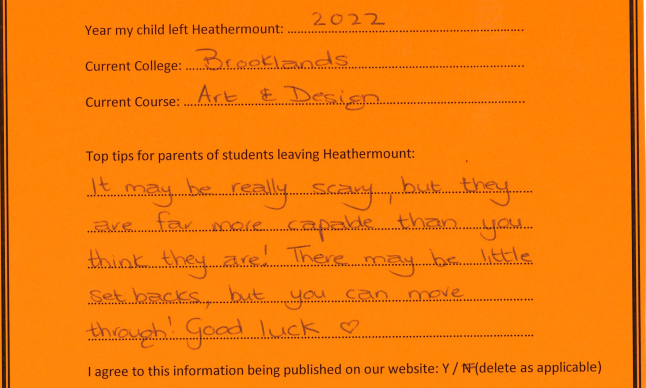 Year my child left Heathermount: 2022
Current College: Brooklands
Current Course: Art & Design
Top tips for parents of students leaving Heathermount:
It may be really scary, but they
are far more capable than you
think they are! There may be little
set backs, but you can move
through! Good luck ♡
I agree to this information being published on our website: Y / N (delete as applicable)